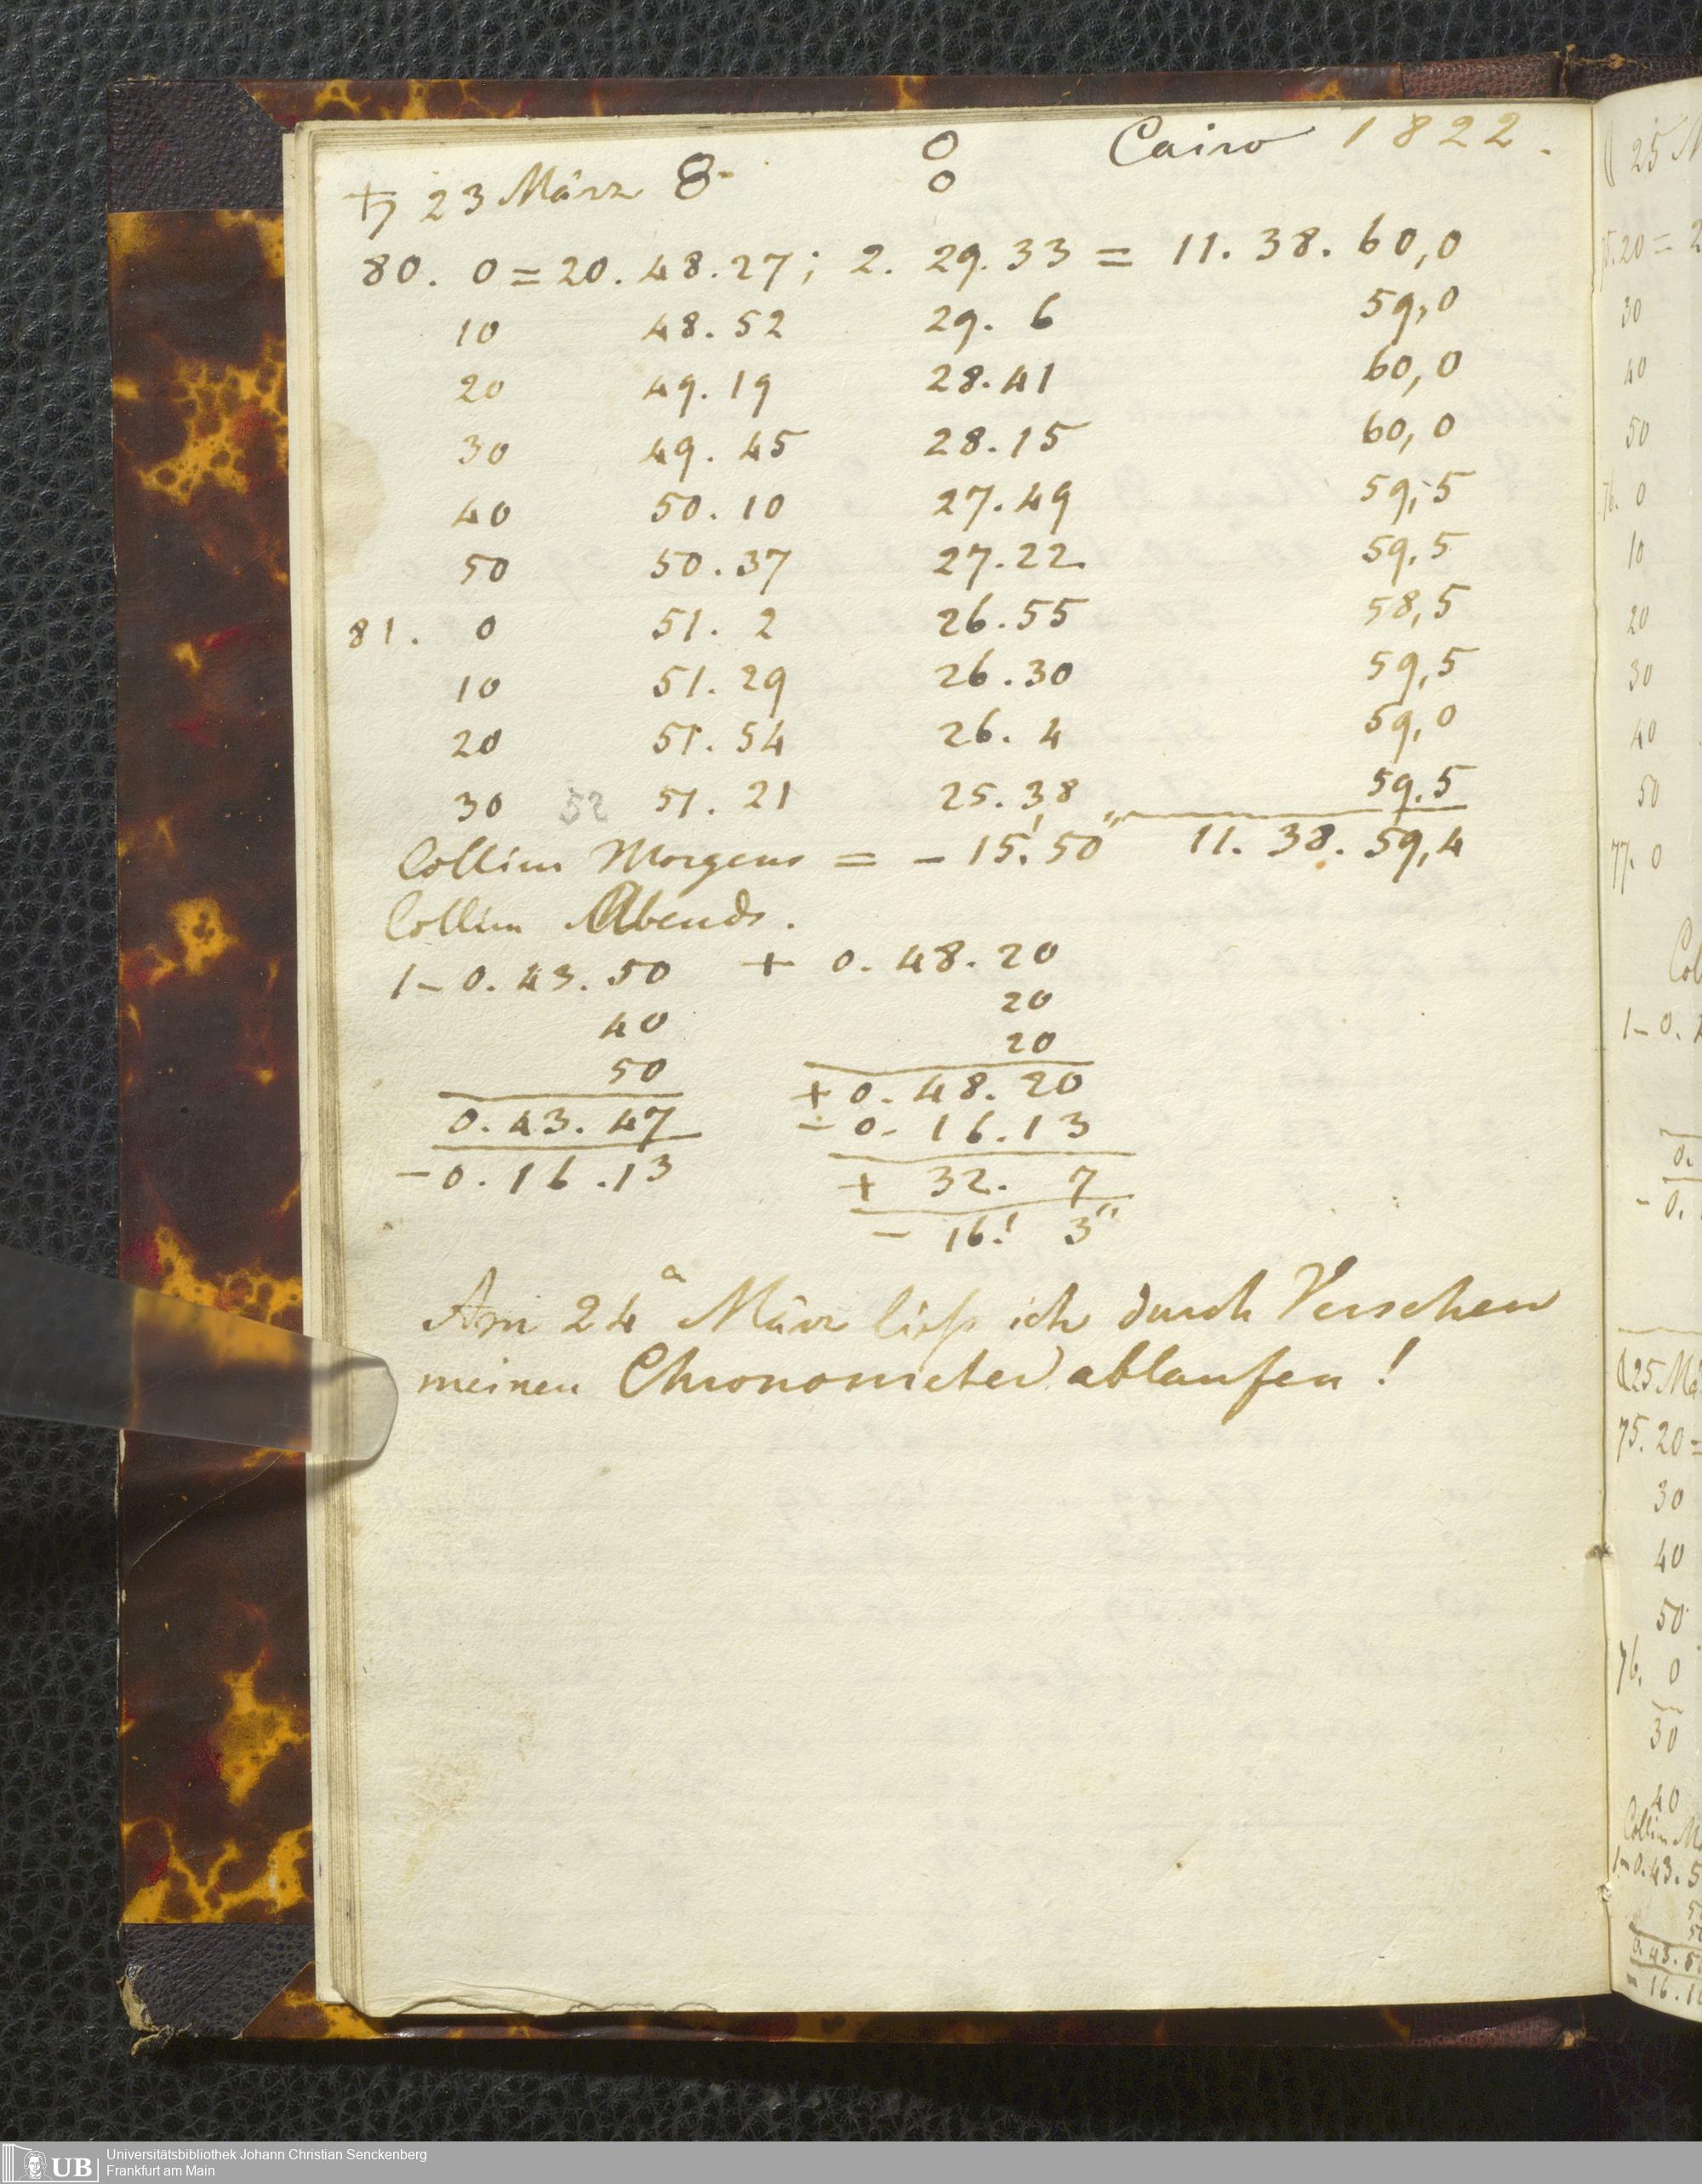 Cairo 1822.
♄ 23 März 8
80. 0 = 20. 48. 27; 2. 29. 33 = 11. 38. 60,0
10 48. 52 29. 6 59,0
20 49. 19 28. 41 60,0
30 49. 45 28. 15 60,0
40 50. 10 27. 49 59,5
50 50. 37 27. 22 59,5
81. 0 51. 2 26. 55 58,5
10 51. 29 26. 30 59,5
20 51. 54 26. 4 59,0
30 52 51. 21 25. 38 59,5
Collim Morgens = - 15.' 50" 11. 38. 59,4
Collim Abends.
1 - 0. 43. 50 + 0. 48. 20
40 20
50 20
0. 43. 47 + 0. 48. 20
- 0. 16. 13 - 0. 16. 13
+ 32. 7
- 16.' 3"
Am 24 März ließ ich durch Versehen
meinen Chronometer ablaufen!
25 M
20 = 2
30
40
50
76. 0
10
20
30
40
50
77. 0
Col
1 - 0.
0.
- 0.
25 Mä
75. 20 =
30
40
50
76. 0
30
40
Collim M
1 - 0. 43. 5
- 16. 1
UB Universitätsbibliothek Johann Christian Senckenberg
Frankfurt am Main